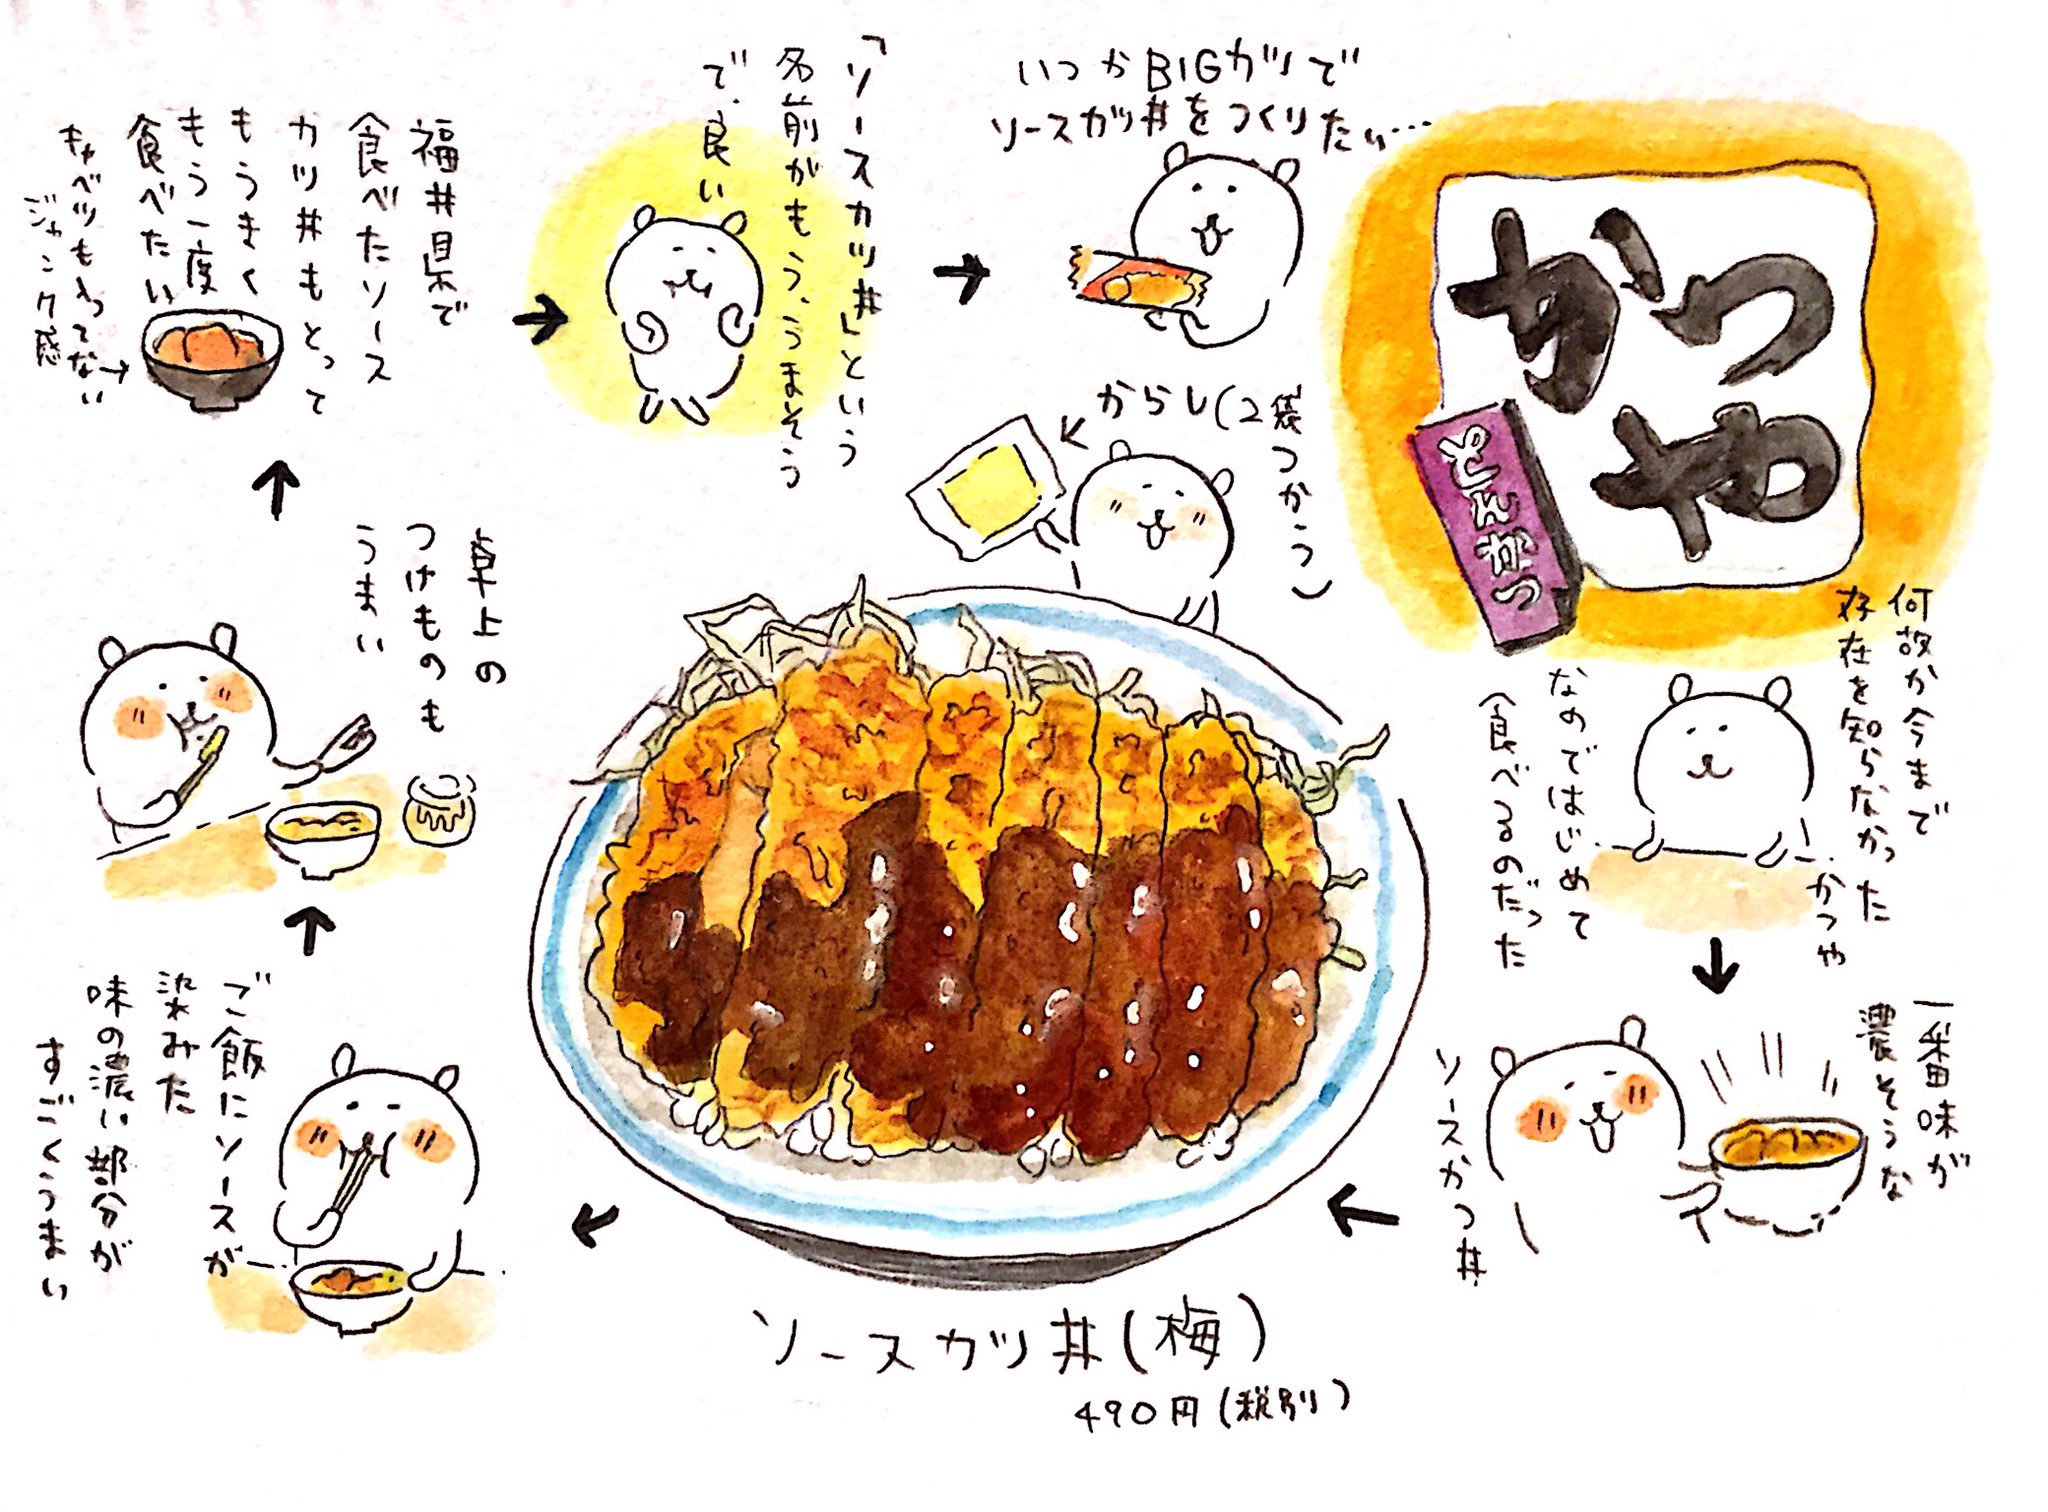 かつや
とんかつ
何故か今まで
存在を知らなかった
かつや
なのではじめて
食べるのだった
一番味が
濃そうな
ソースかつ丼
からし(2袋つかう)
ソースカツ丼(梅)
490円(税別)
ご飯にソースが
染みた
味の濃い部分が
すごくうまい
卓上の
つけものも
うまい
福井県で
食べたソース
カツ丼もとって
もうまく
もう一度
食べたい
キャベツも入ってない
ジャンク感
「ソースカツ丼」という
名前がもう、うまそう
で、良い
いつかBIGカツで
ソースカツ丼をつくりたい…